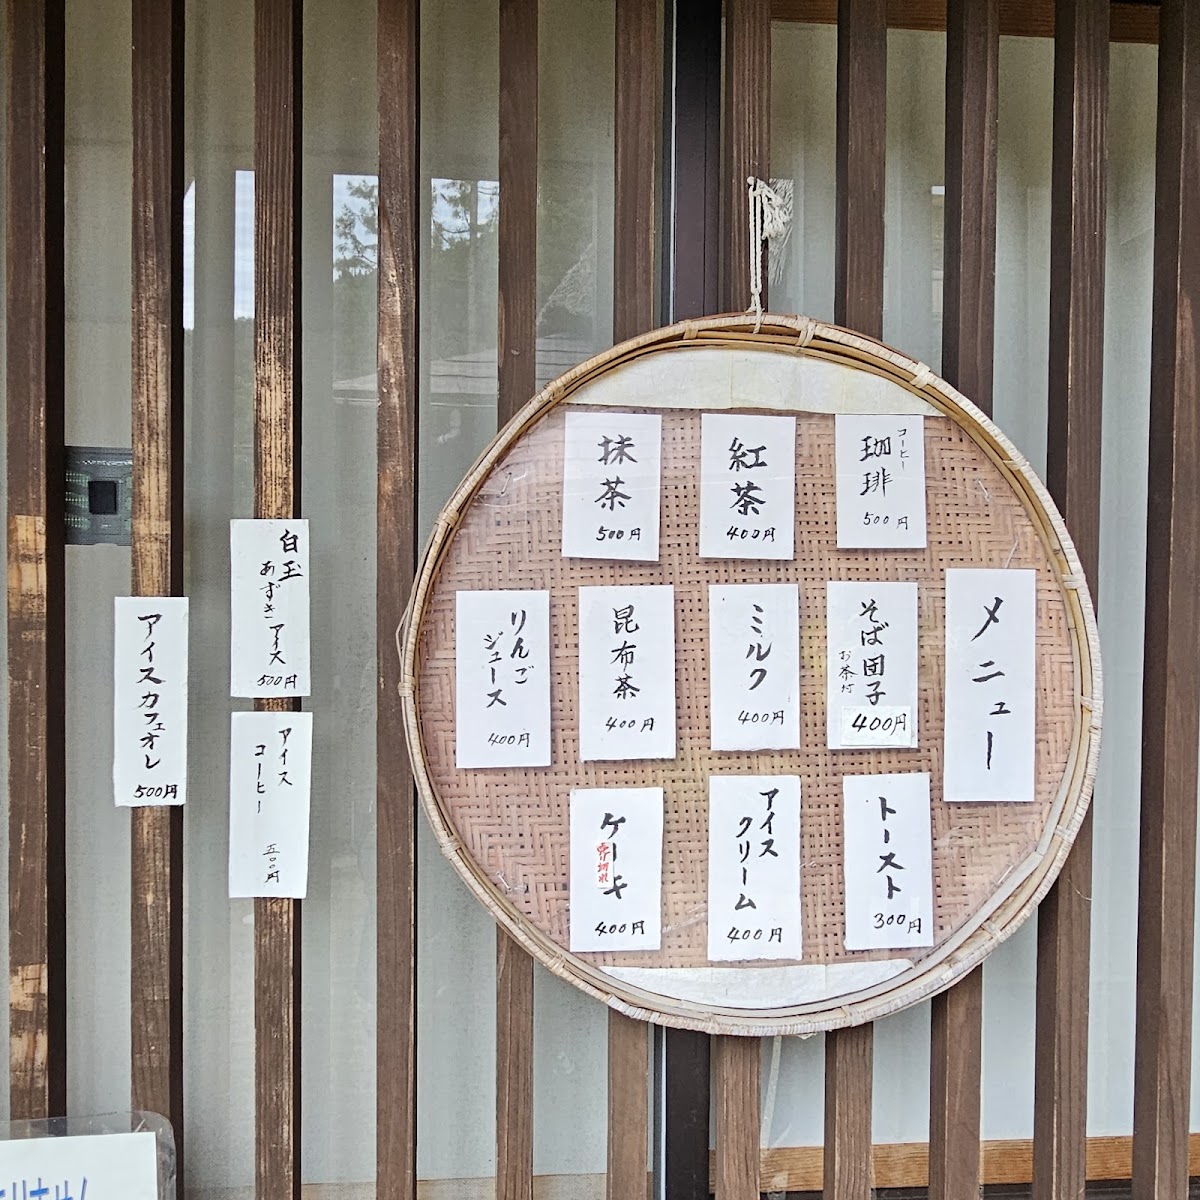 メニュー
コーヒー
珈琲
500円
紅茶
400円
抹茶
500円
そば団子
お茶付
400円
ミルク
400円
昆布茶
400円
りんご
ジュース
400円
トースト
300円
アイス
クリーム
400円
ケーキ
売切れ
400円
白玉
あずきアイス
500円
アイス
コーヒー
五〇〇円
アイスカフェオレ
500円